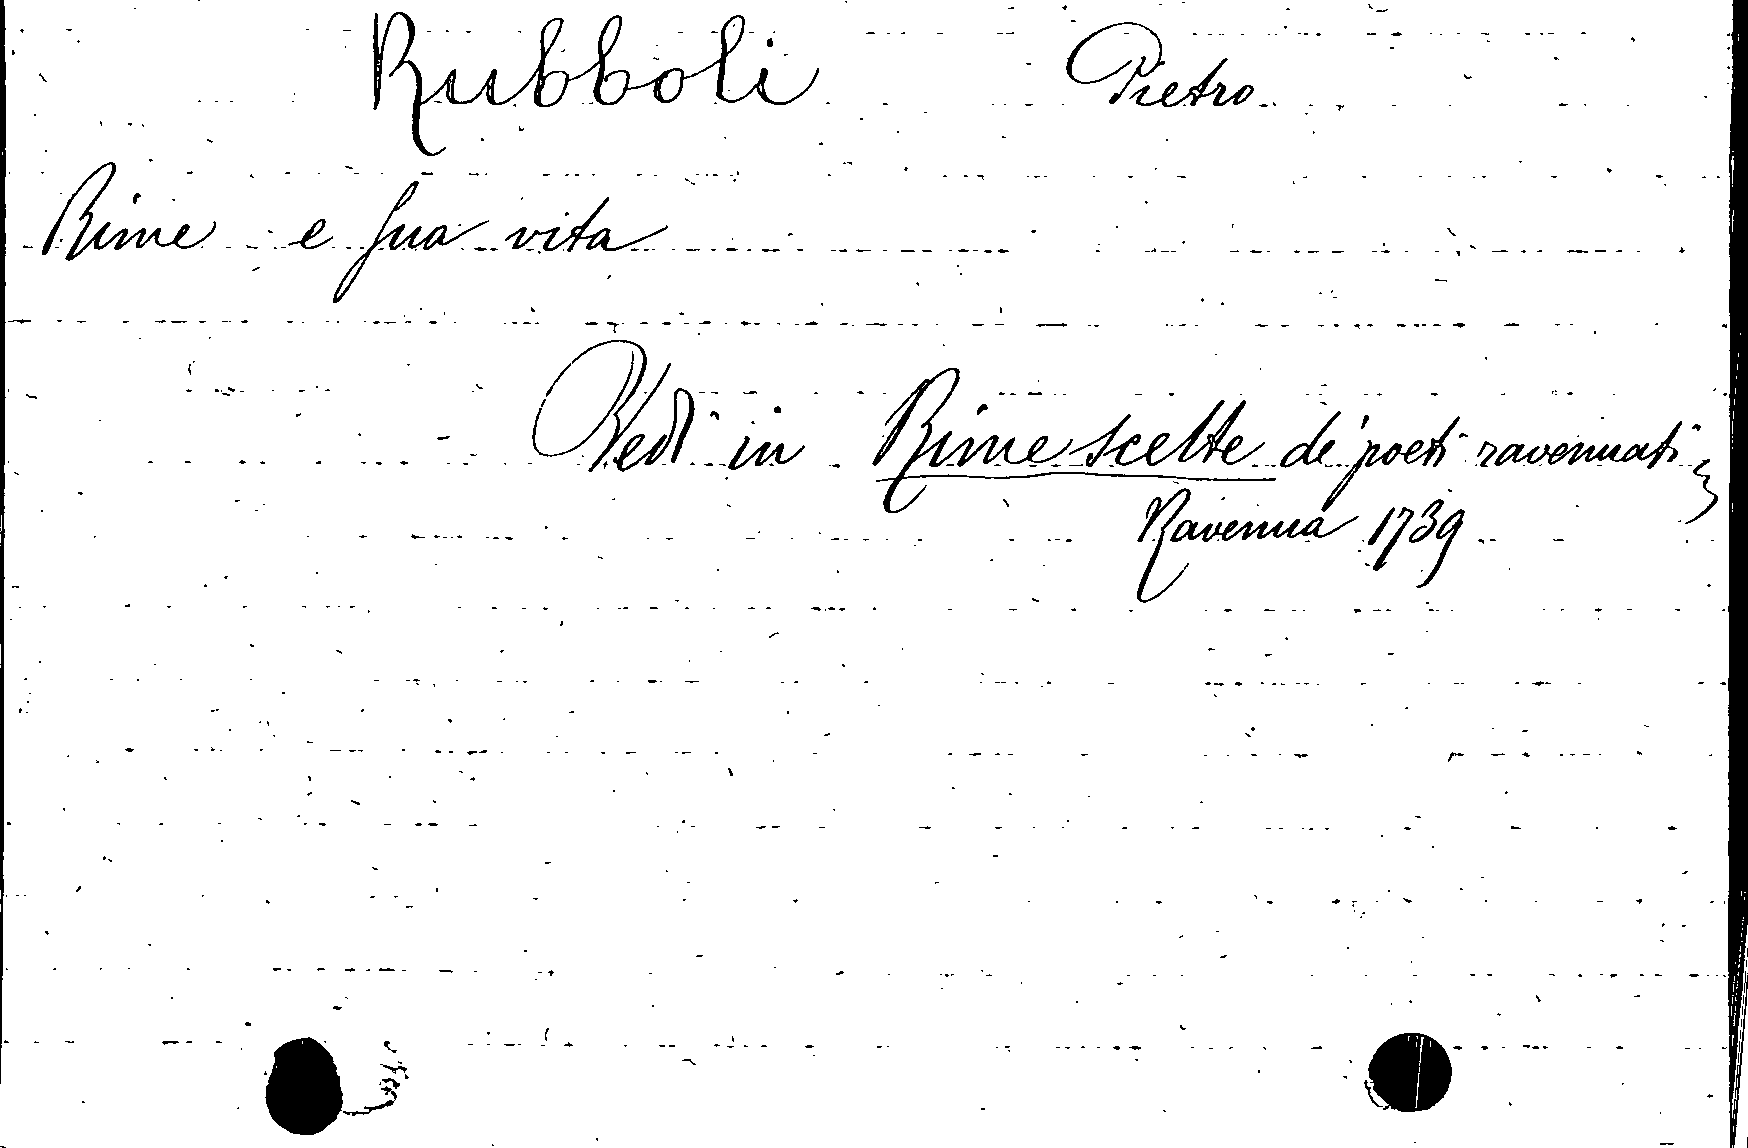 Rubboli Pietro
Rime e sua vita
Vedi in Rime scelte de' poeti ravennati
Ravenna 1739